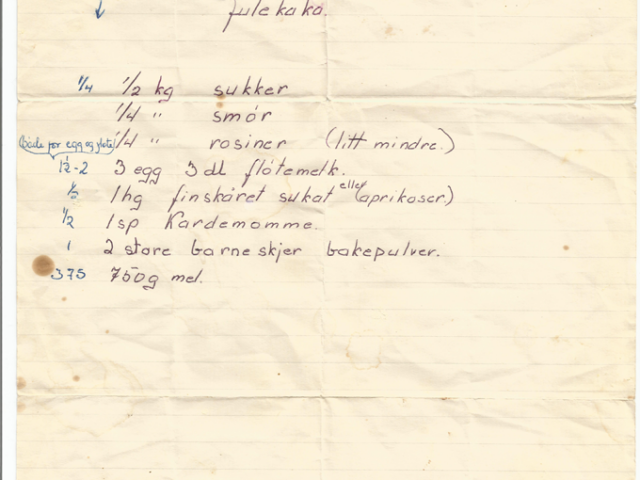 ↓ Julekaka.
1/4 1/2 kg sukker
1/4 " smör
(Både for egg og fløte) 1/4 " rosiner (litt mindre.)
1½-2 3 egg 3 dl flötemelk.
½ 1 hg finskåret sukat eller (aprikoser.)
1/2 1 sp Kardemomme.
1 2 store barneskjer bakepulver.
375 750g mel.